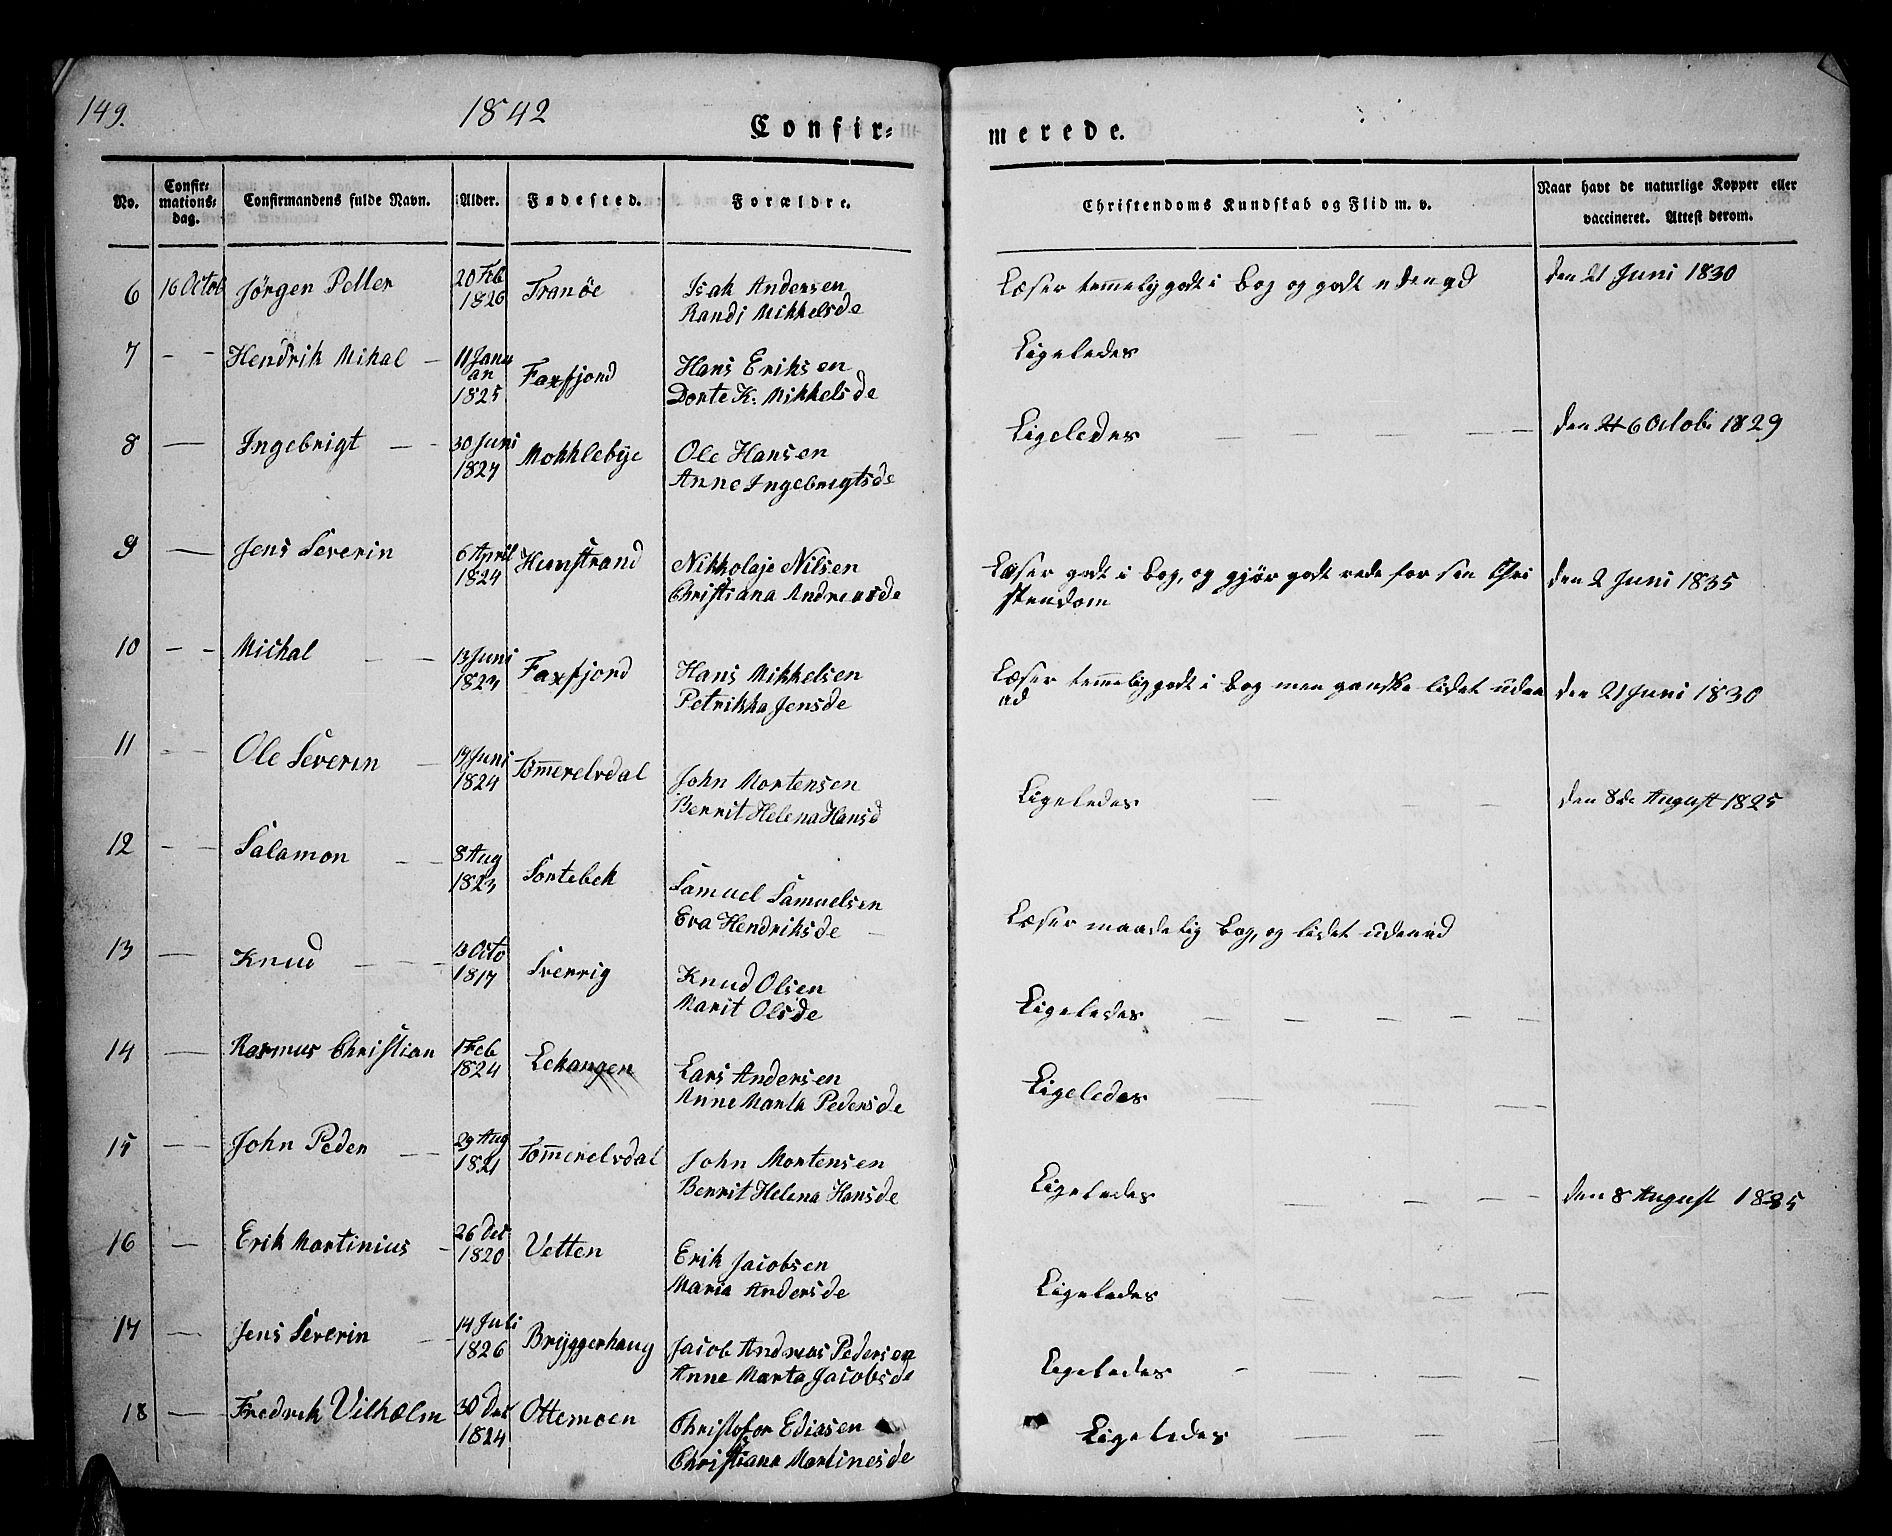 149.
1842
Confir=
merede.
No.
Confir=
mations=
dag.
Confirmandens fulde Navn.
Alder.
Fødested.
Forældre.
Christendoms Kundskab og Flid m. v.
Naar havt de naturlige Kopper eller
vaccineret. Attest derom.
6 16 Octob Jörgen Petter 20 Feb 1826 Tranöe
Isak Andersen
Randi Mikkelsde
Læser temmelig godt i bog og godt udenad
den 21 Juni 1830
7 - - Hendrik Mikal - 11 Janu
an
1825
Faxfjord
Hans Eriksen
Dorte K. Mikkelsde
Ligeledes
8 - Ingebrigt - - 30 Juni
1827
Mokklebye
Ole Hansen
Anne Ingebrigtsde
Ligeledes - - - - -
den 6 Octobr 1829
9 - Jens Severin 6 April
1824
Humstrand
Nikkolaje Nilsen
Christiana Andreasde
Læser godt i bog, og gjör godt rede for sin Chri
stendom
den 2 Juni 1835
10 - - Michal - - 13 Juni
1823
Faxfjord
Hans Mikkelsen
Petrikka Jensde
Læser temmelig godt i bog men ganske lidet uden
ad
den 21 Juni 1830
11 - - Ole Severin - 19 Juni
1824
Tömmerelvdal
John Mortensen
Berrit Helena Hansd
Ligeledes - - -
den 8de August 1825
12 - - Salamon - - 8 Aug
1823
Sortebek
Samuel Samuelsen
Eva Hendriksde -
Læser maadelig bog, og lidet udenad
13 - Knud - - - 13 Octo
1817
Sverrig
Knud Olsen
Marit Olsde
Ligeledes - - - - -
14 - Rasmus Christian 1 Feb
1824
Lekangen
Lars Andersen
Anne Marta Pedersde
Ligeledes - - -
15 - John Peder - - 29 Aug
1821
Tömmerelvdal
John Mortensen
Berrit Helena Hansde
Ligeledes - - - -
den 8 August 1825
16 - Erik Martinius - 26 Dec
1820
Vetten
Erik Jacobsen
Maria Andersde
Ligeledes - - -
17 - Jens Severin - - 14 Juli
1826
Bryggerhaug
Jacob Andreas Pedersen
Anne Marta Jacobsde
Ligeledes - - -
18 - Fredrik Vilhelm 30 Dec
1824
Ottemoen
Christofor Ediasen
Christiana Martinesde
Ligeledes - - -